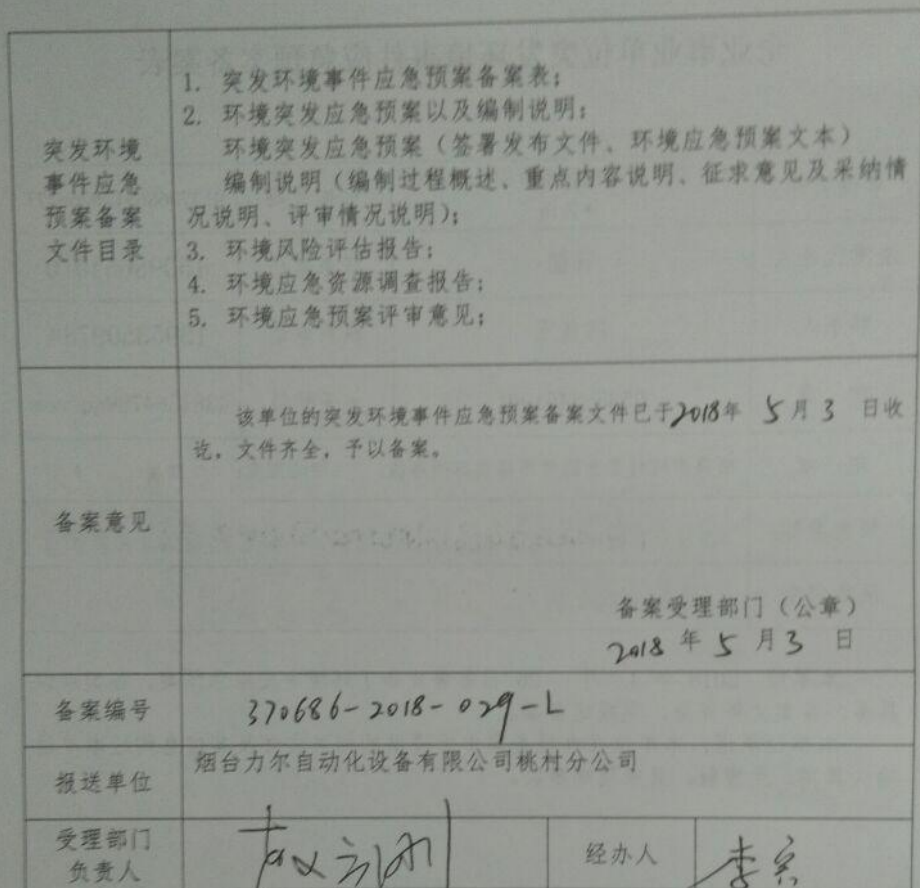 1. 突发环境事件应急预案备案表；
2. 环境突发应急预案以及编制说明；
环境突发应急预案（签署发布文件、环境应急预案文本）
突发环境
事件应急
预案备案
文件目录
编制说明（编制过程概述、重点内容说明、征求意见及采纳情
况说明、评审情况说明）；
3. 环境风险评估报告；
4. 环境应急资源调查报告；
5. 环境应急预案评审意见；
该单位的突发环境事件应急预案备案文件已于2018年 5月3 日收
讫，文件齐全，予以备案。
备案意见
备案受理部门（公章）
2018 年 5 月 3 日
备案编号
370686-2018-029-L
报送单位
烟台力尔自动化设备有限公司桃村分公司
受理部门
负责人
经办人